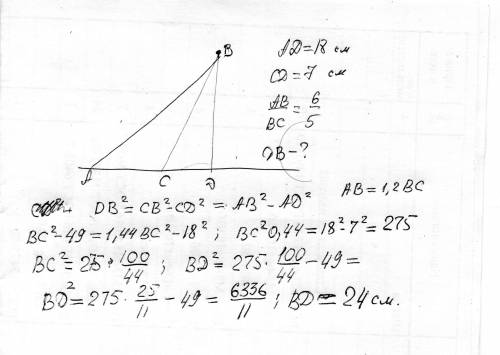 B
AD=18 см
CD=7 см
AB/BC = 6/5
DB-?
A C D
AB=1,2BC
DB²=CB²-CD²=AB²-AD²
BC²-49=1,44BC²-18²; BC²0,44=18²-7²=275
BC²=275·100/44; BD²=275·100/44-49=
BD²=275·25/11-49=6336/11; BD=24см.